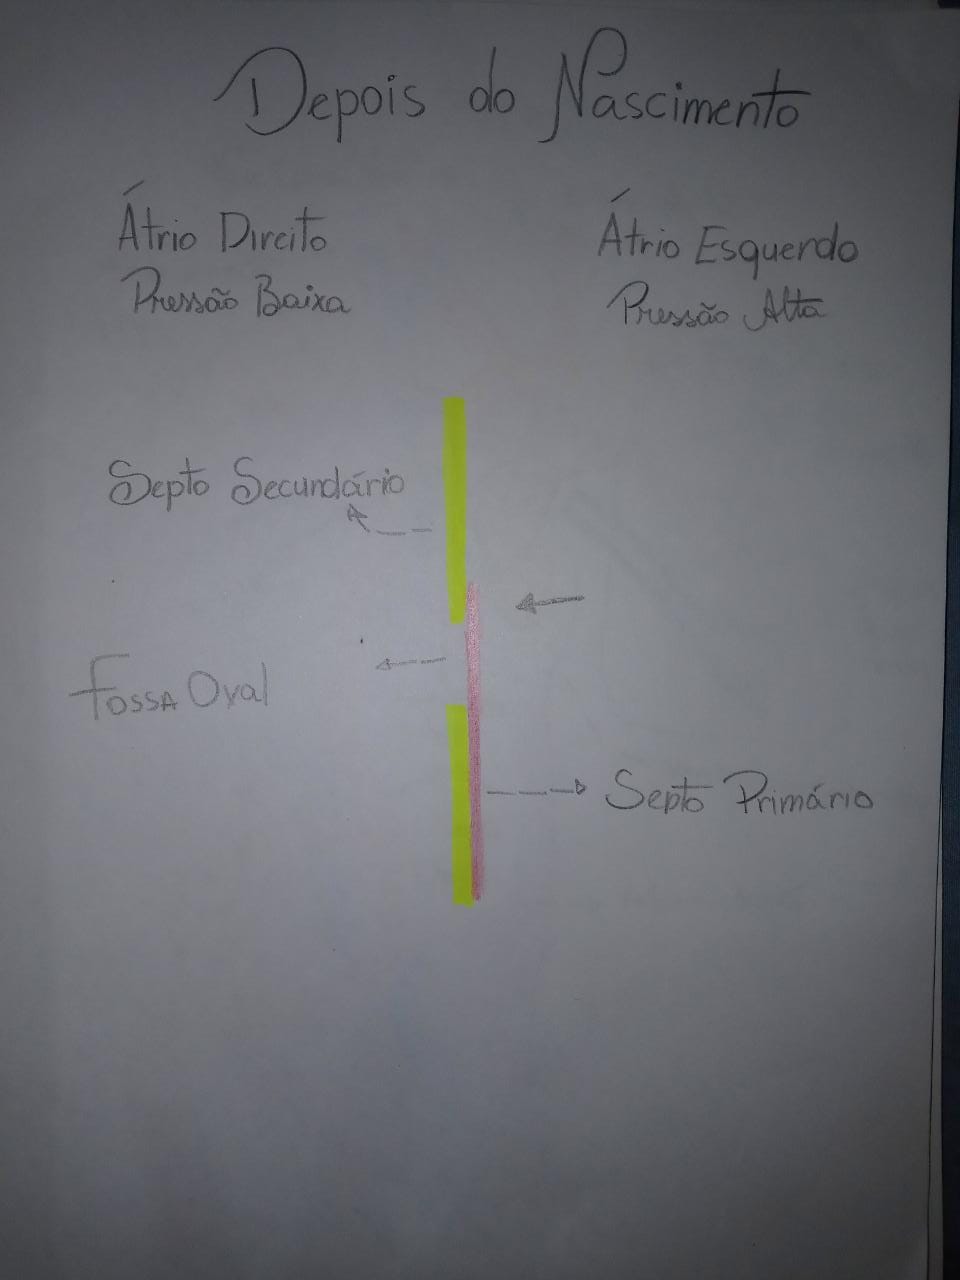 Depois do Nascimento
Átrio Direito
Pressão Baixa
Átrio Esquerdo
Pressão Alta
Septo Secundário
Fossa Oval
Septo Primário